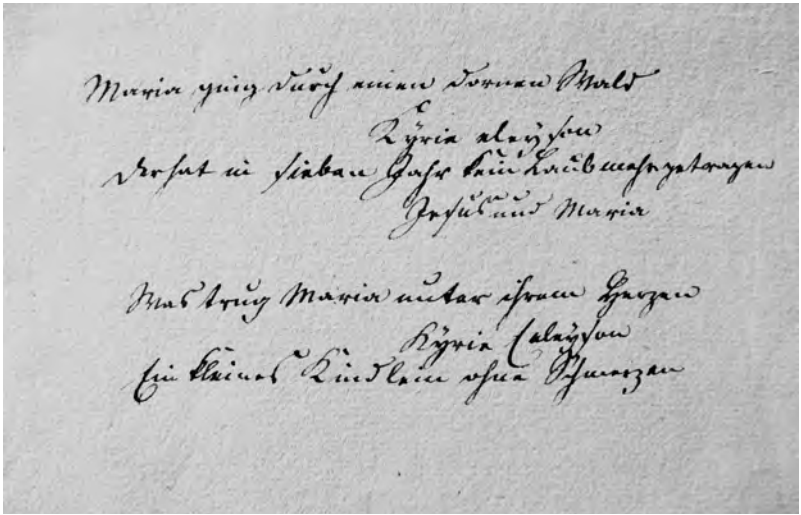 Maria ging durch einen dornen Wald
Kyrie eleyson
der hat in sieben Jahr kein Laub mehr getragen
Jesus und Maria
Was trug Maria unter ihrem Herzen
Kyrie Eeleyson
Ein kleines Kindlein ohne Schmerzen